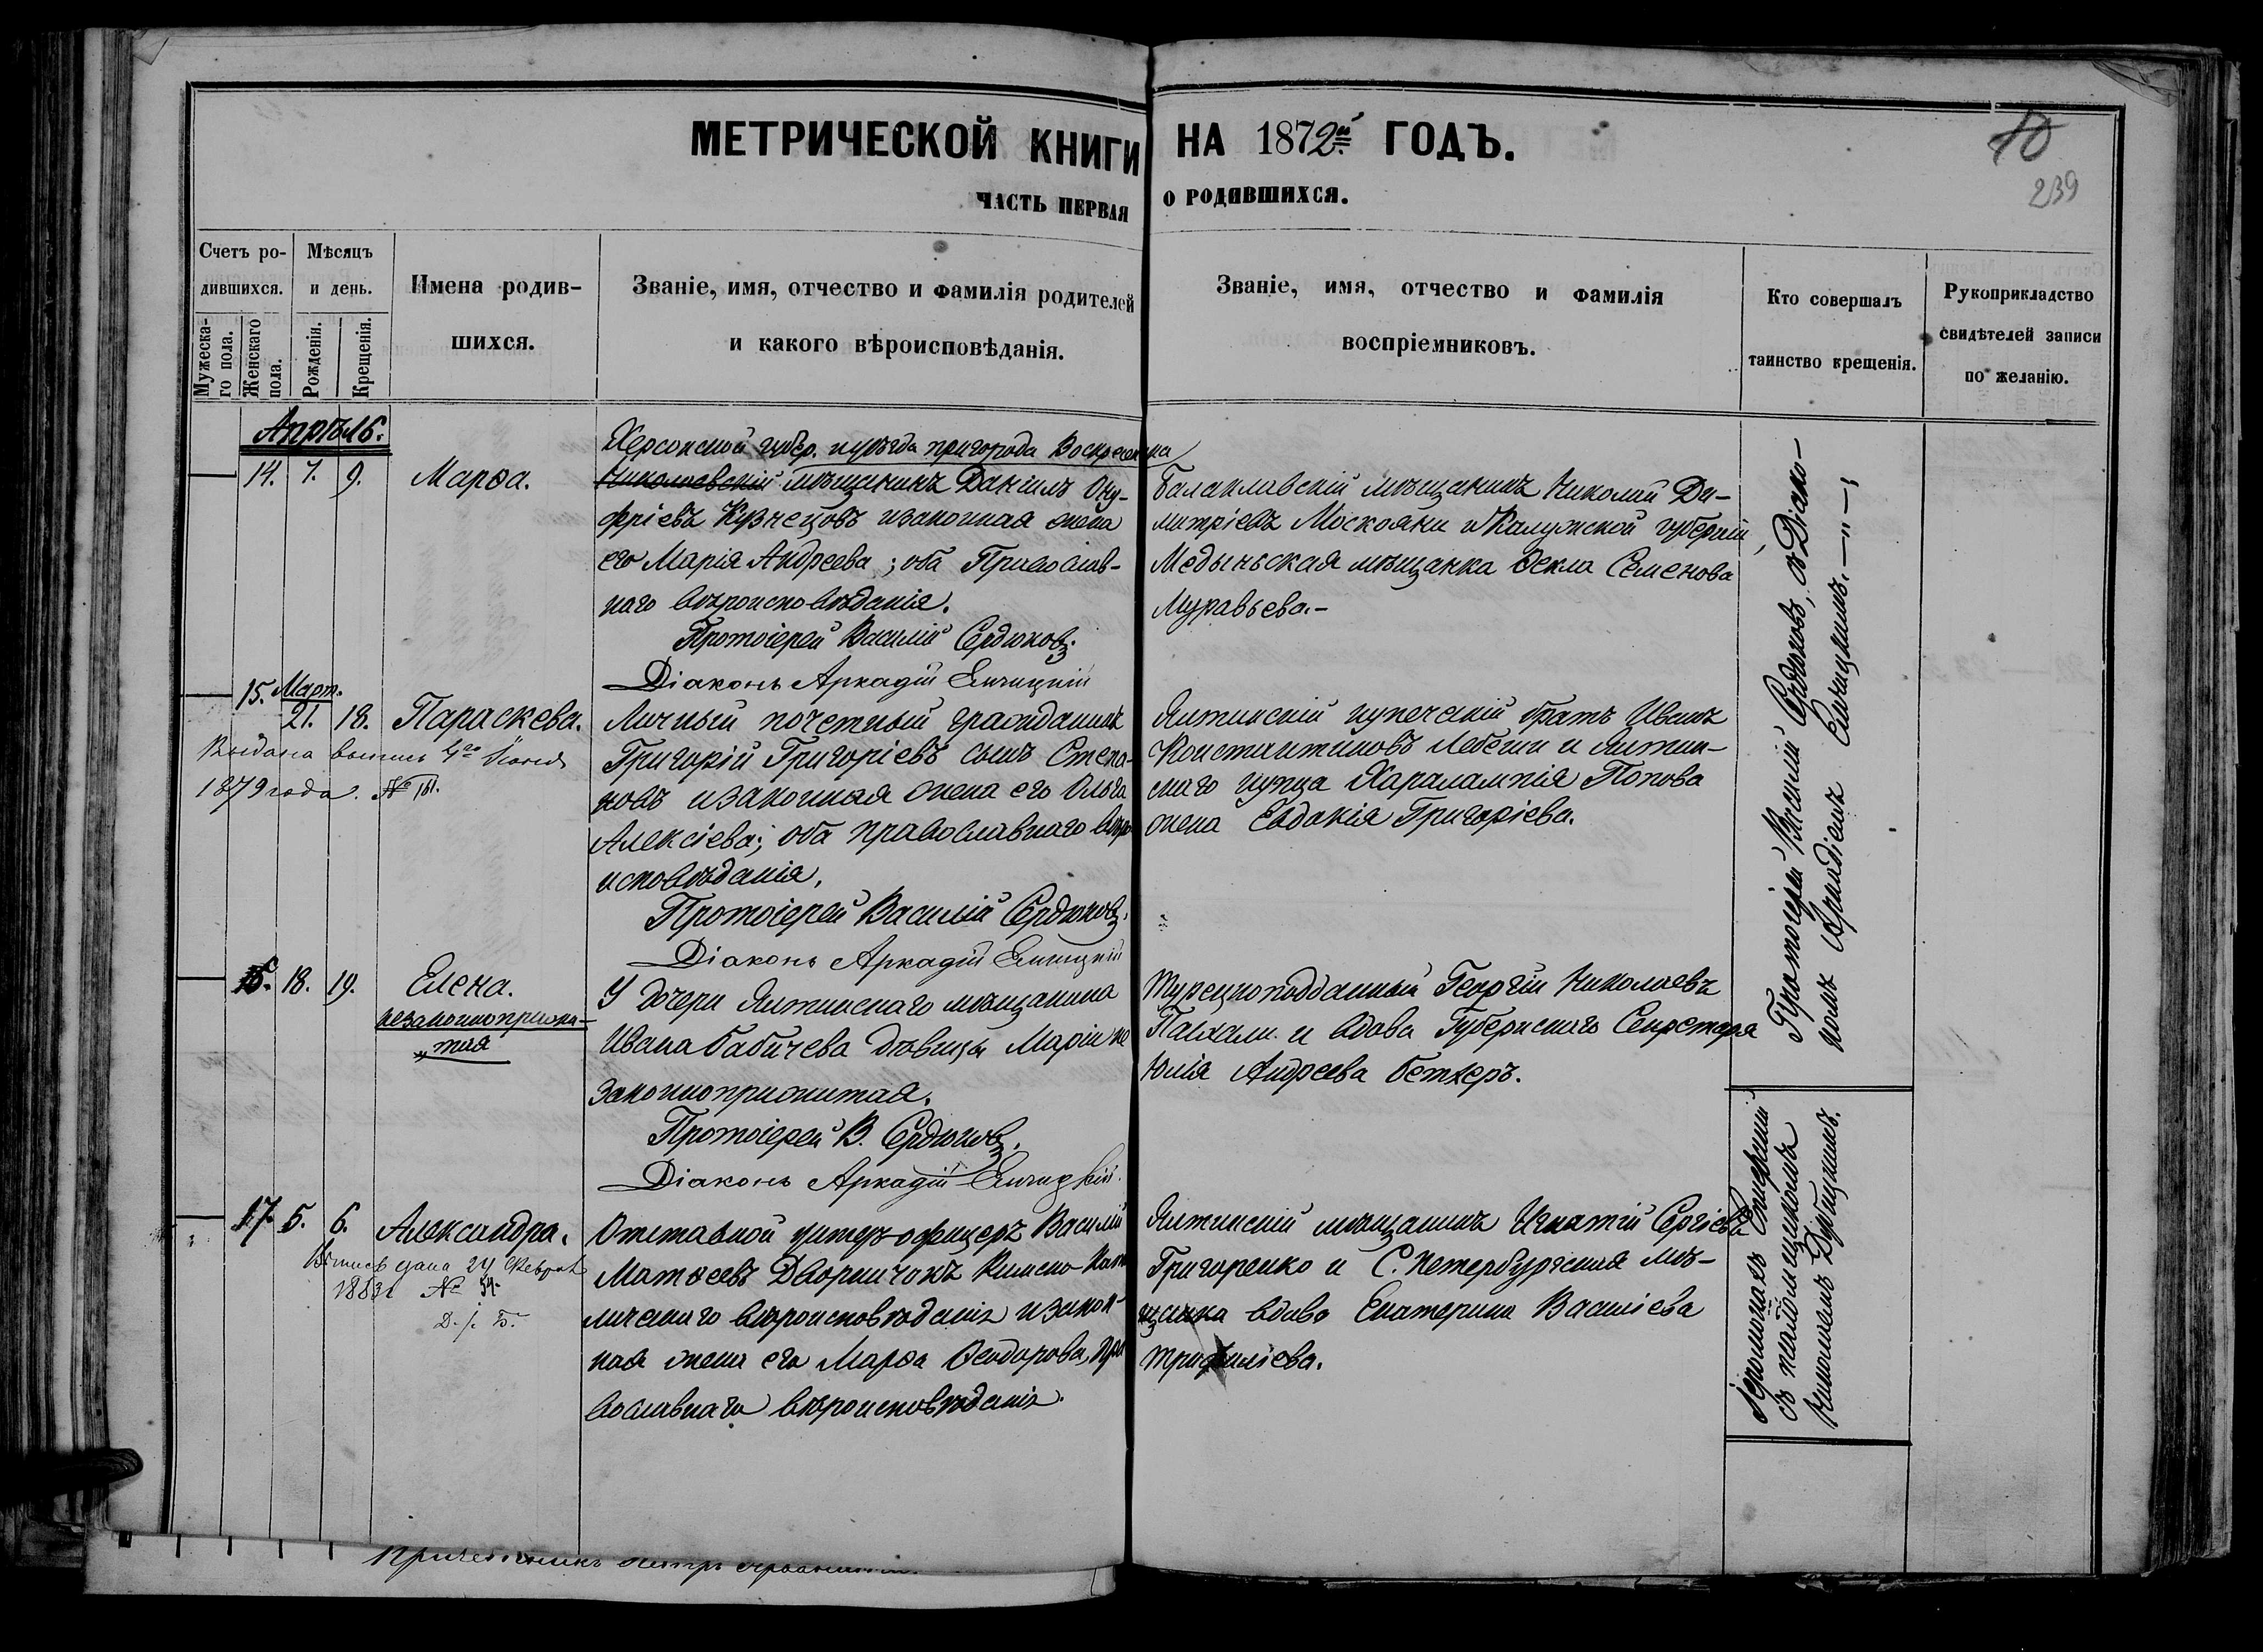 МЕТРИЧЕСКОЙ КНИГИ НА 1872й ГОДЪ.
10
239
ЧАСТЬ ПЕРВАЯ О РОДИВШИХСЯ.
Счетъ ро-
дившихся.
Мужеска-
го пола.
Женскаго
пола.
Мѣсяцъ
и день.
Рожденія.
Крещенія.
Имена родив-
шихся.
Званіе, имя, отчество и фамилія родителей
и какого вѣроисповѣданія.
Званіе, имя, отчество и фамилія
воспріемниковъ.
Кто совершалъ
таинство крещенія.
Рукоприкладство
свидѣтелей записи
по желанію.
Апрѣль.
14. 7. 9. Марѳа.
Херсонской губер. и уѣзда пригорода Воскресенска
Николаевскій мѣщанинъ Даніилъ Ону-
фріевъ Кузнецовъ и законная жена
его Марія Андреева; оба Православ-
наго вѣроисповѣданія.
Протоіерей Василій Сердюковъ.
Діаконъ Аркадій
Балаклавскій мѣщанинъ Николай Ди-
митріевъ Москояни и Калужской губерніи,
Медыньская мѣщанка Ѳекла Семенова
Муравьева.-
15. Март.
21. 18. Параскева.
Выдана выпись 4го Іюня
1879 года. №
Личный почетный гражданинъ
Григорій Григоріевъ сынъ Степа-
новъ и законная жена его Ольга
Алексіева; оба православнаго вѣро
исповѣданія.
Протоіерей Василій Сердюковъ.
Діаконъ Аркадій
Ялтинскій купеческій братъ Иванъ
Константиновъ и Ялтин-
скаго купца Харалампія Попова
жена Евдокія Григоріева.
18. 19. Елена.
незаконноприжи-
тая
У дочери Ялтинскаго мѣщанина
Ивана Бабичева дѣвицы Маріи не
законноприжитая.
Протоіерей В. Сердюковъ.
Діаконъ Аркадій
Турецкоподданный Георгій Николаевъ
и вдова Губернскаго Секретаря
Юлія Андреева
17. 5. 6. Александра.
Выпись дана 24 Февраля
№
Отставной унтеръ-офицеръ Василій
Матѳеевъ Римско-Като
лическаго вѣроисповѣданія и закон-
ная жена его Марѳа Ѳеодорова, пра
вославнаго вѣроисповѣданія.
Ялтинскій мѣщанинъ Игнатій Сергіевъ
Григоренко и С. Петербургская мѣ-
щанка вдова Екатерина Василіева
Трифиліева.
Протоіерей Василій Сердюковъ, съ Діако-
номъ Аркадіемъ
Іеромонахъ
съ псаломщикомъ
Николаемъ